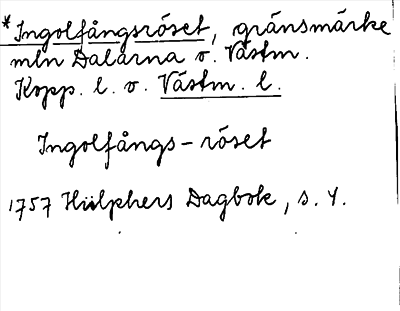 *Ingolfångsröset, gränsmärke
mln Dalarna o. Västm.
Kopp. l. o. Västm. l.
Ingolfångs-röset
1757 Hülphers Dagbok, s. 4.